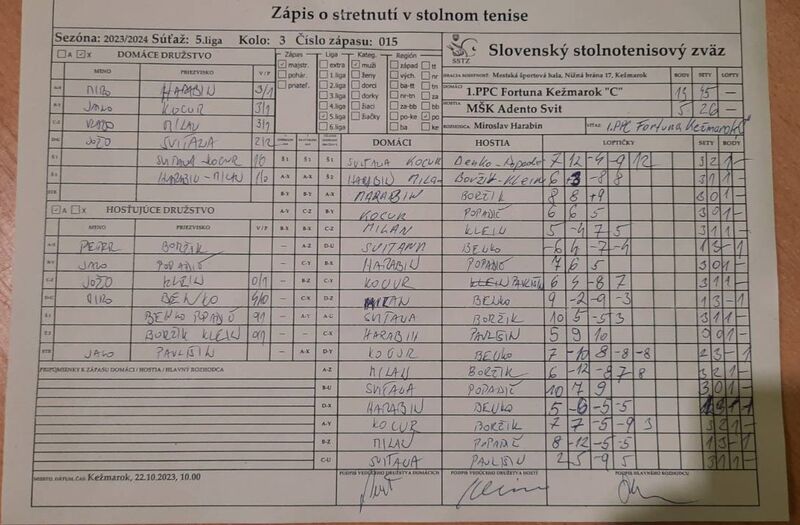 Zápis o stretnutí v stolnom tenise
Sezóna: 2023/2024 Súťaž: 5.liga Kolo: 3 Číslo zápasu: 015
A X DOMÁCE DRUŽSTVO
MENO PRIEZVISKO V / P
MIRO HARABIN 3/1
JANO KOCUR 3/1
MILAN 3/1
JOŽO SVITANA 2/2
SVITANA KOCUR 1/0
HARABIN - MILAN 1/0
Zápas Liga Kateg. Región
majstr. extra muži západ tt
pohár. 1.liga ženy vých. nr
priateľ. 2.liga dorci ba-tt tn
3.liga dorky nr-tn za
4.liga žiaci za-bb bb
5.liga žiačky po-ke po
6.liga ba ke
SSTZ
Slovenský stolnotenisový zväz
HRACIA MIESTNOSŤ: Mestská športová hala, Nižná brána 17, Kežmarok BODY SETY LOPTY
DOMÁCI 1.PPC Fortuna Kežmarok "C" 45
HOSTIA MŠK Adento Svit 5 26
ROZHODCA Miroslav Harabin VÍŤAZ 1.PPC Fortuna Kežmarok
A X HOSŤUJÚCE DRUŽSTVO
MENO PRIEZVISKO V / P
PETER BORŽIK
JANO POPADIČ
JOŽO KLEIN 0/1
MIRO BENKO 4/0
BENKO POPADIČ 0/1
BORŽIK KLEIN 0/1
JANO PAVLIŠIN
DOMÁCI HOSTIA LOPTIČKY SETY BODY
SVITANA KOCUR Benko - Popadič 7 12 -4 -9 12 3 2 1 -
HARABIN MILAN BORŽIK - KLEIN 6 -3 8 8 3 1 1 -
HARABIN BORŽIK 8 8 9 3 0 1 -
KOCUR POPADIČ 6 6 5 3 0 1 -
MILAN KLEIN 5 -4 7 5 3 1 1 -
SVITANA BENKO -6 4 -7 -4 1 3 - 1
HARABIN POPADIČ 7 6 5 3 0 1 -
KOCUR PAVLIŠIN 6 4 -8 7 3 1 1 -
MILAN BENKO 9 -2 -9 -3 1 3 - 1
SVITANA BORŽIK 10 5 -5 3 3 1 1 -
HARABIN PAVLIŠIN 5 9 10 3 0 1 -
KOCUR BENKO 7 -10 8 -8 -8 2 3 - 1
MILAN BORŽIK 6 -12 -8 7 8 3 2 1 -
SVITANA POPADIČ 10 7 9 3 0 1 -
HARABIN BENKO 5 -6 -5 -5 1 3 - 1
KOCUR BORŽIK 7 7 -5 -9 3 3 2 1 -
MILAN POPADIČ 8 -12 -5 -5 1 3 - 1
SVITANA PAVLIŠIN 2 5 -9 5 3 1 1 -
PRIPOMIENKY K ZÁPASU DOMÁCI / HOSTIA / HLAVNÝ ROZHODCA
MIESTO, DÁTUM, ČAS Kežmarok, 22.10.2023, 10.00
PODPIS VEDÚCEHO DRUŽSTVA DOMÁCICH PODPIS VEDÚCEHO DRUŽSTVA HOSTÍ PODPIS HLAVNÉHO ROZHODCU